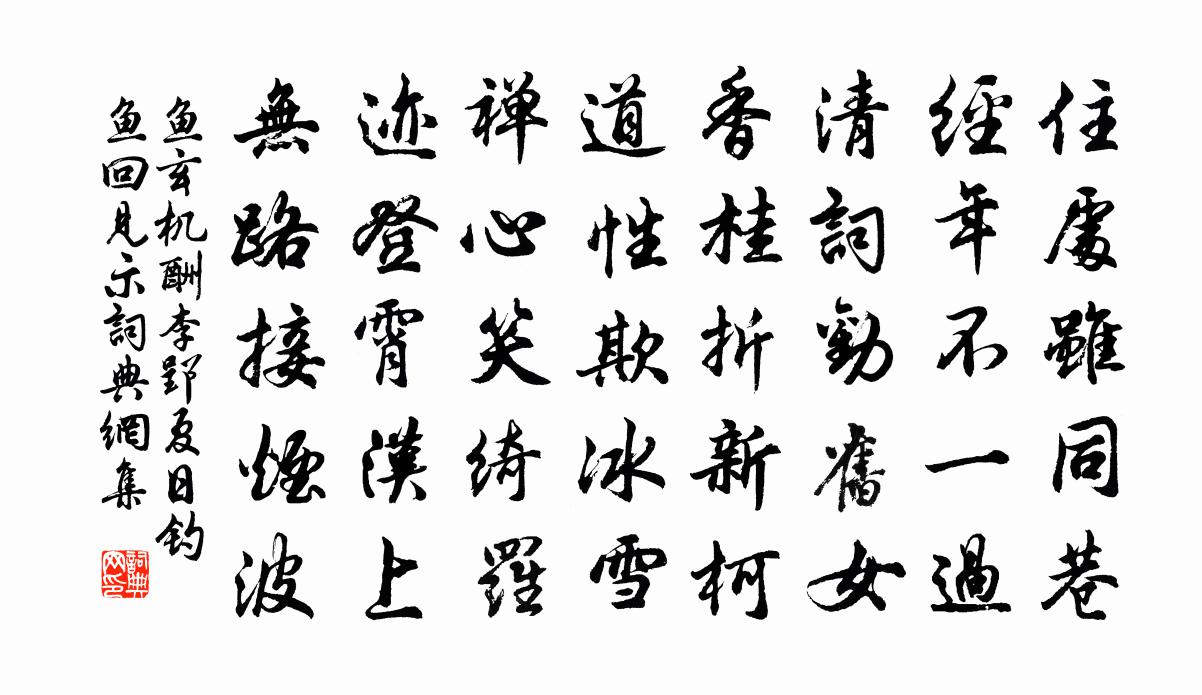 住處雖同巷
經年不一過
清詞勸舊女
香桂折新柯
道性欺冰雪
禅心笑綺羅
迹登霄漢上
無路接煙波
鱼玄机酬李郢夏日钓
鱼回見示詞典網集
詞典
网印